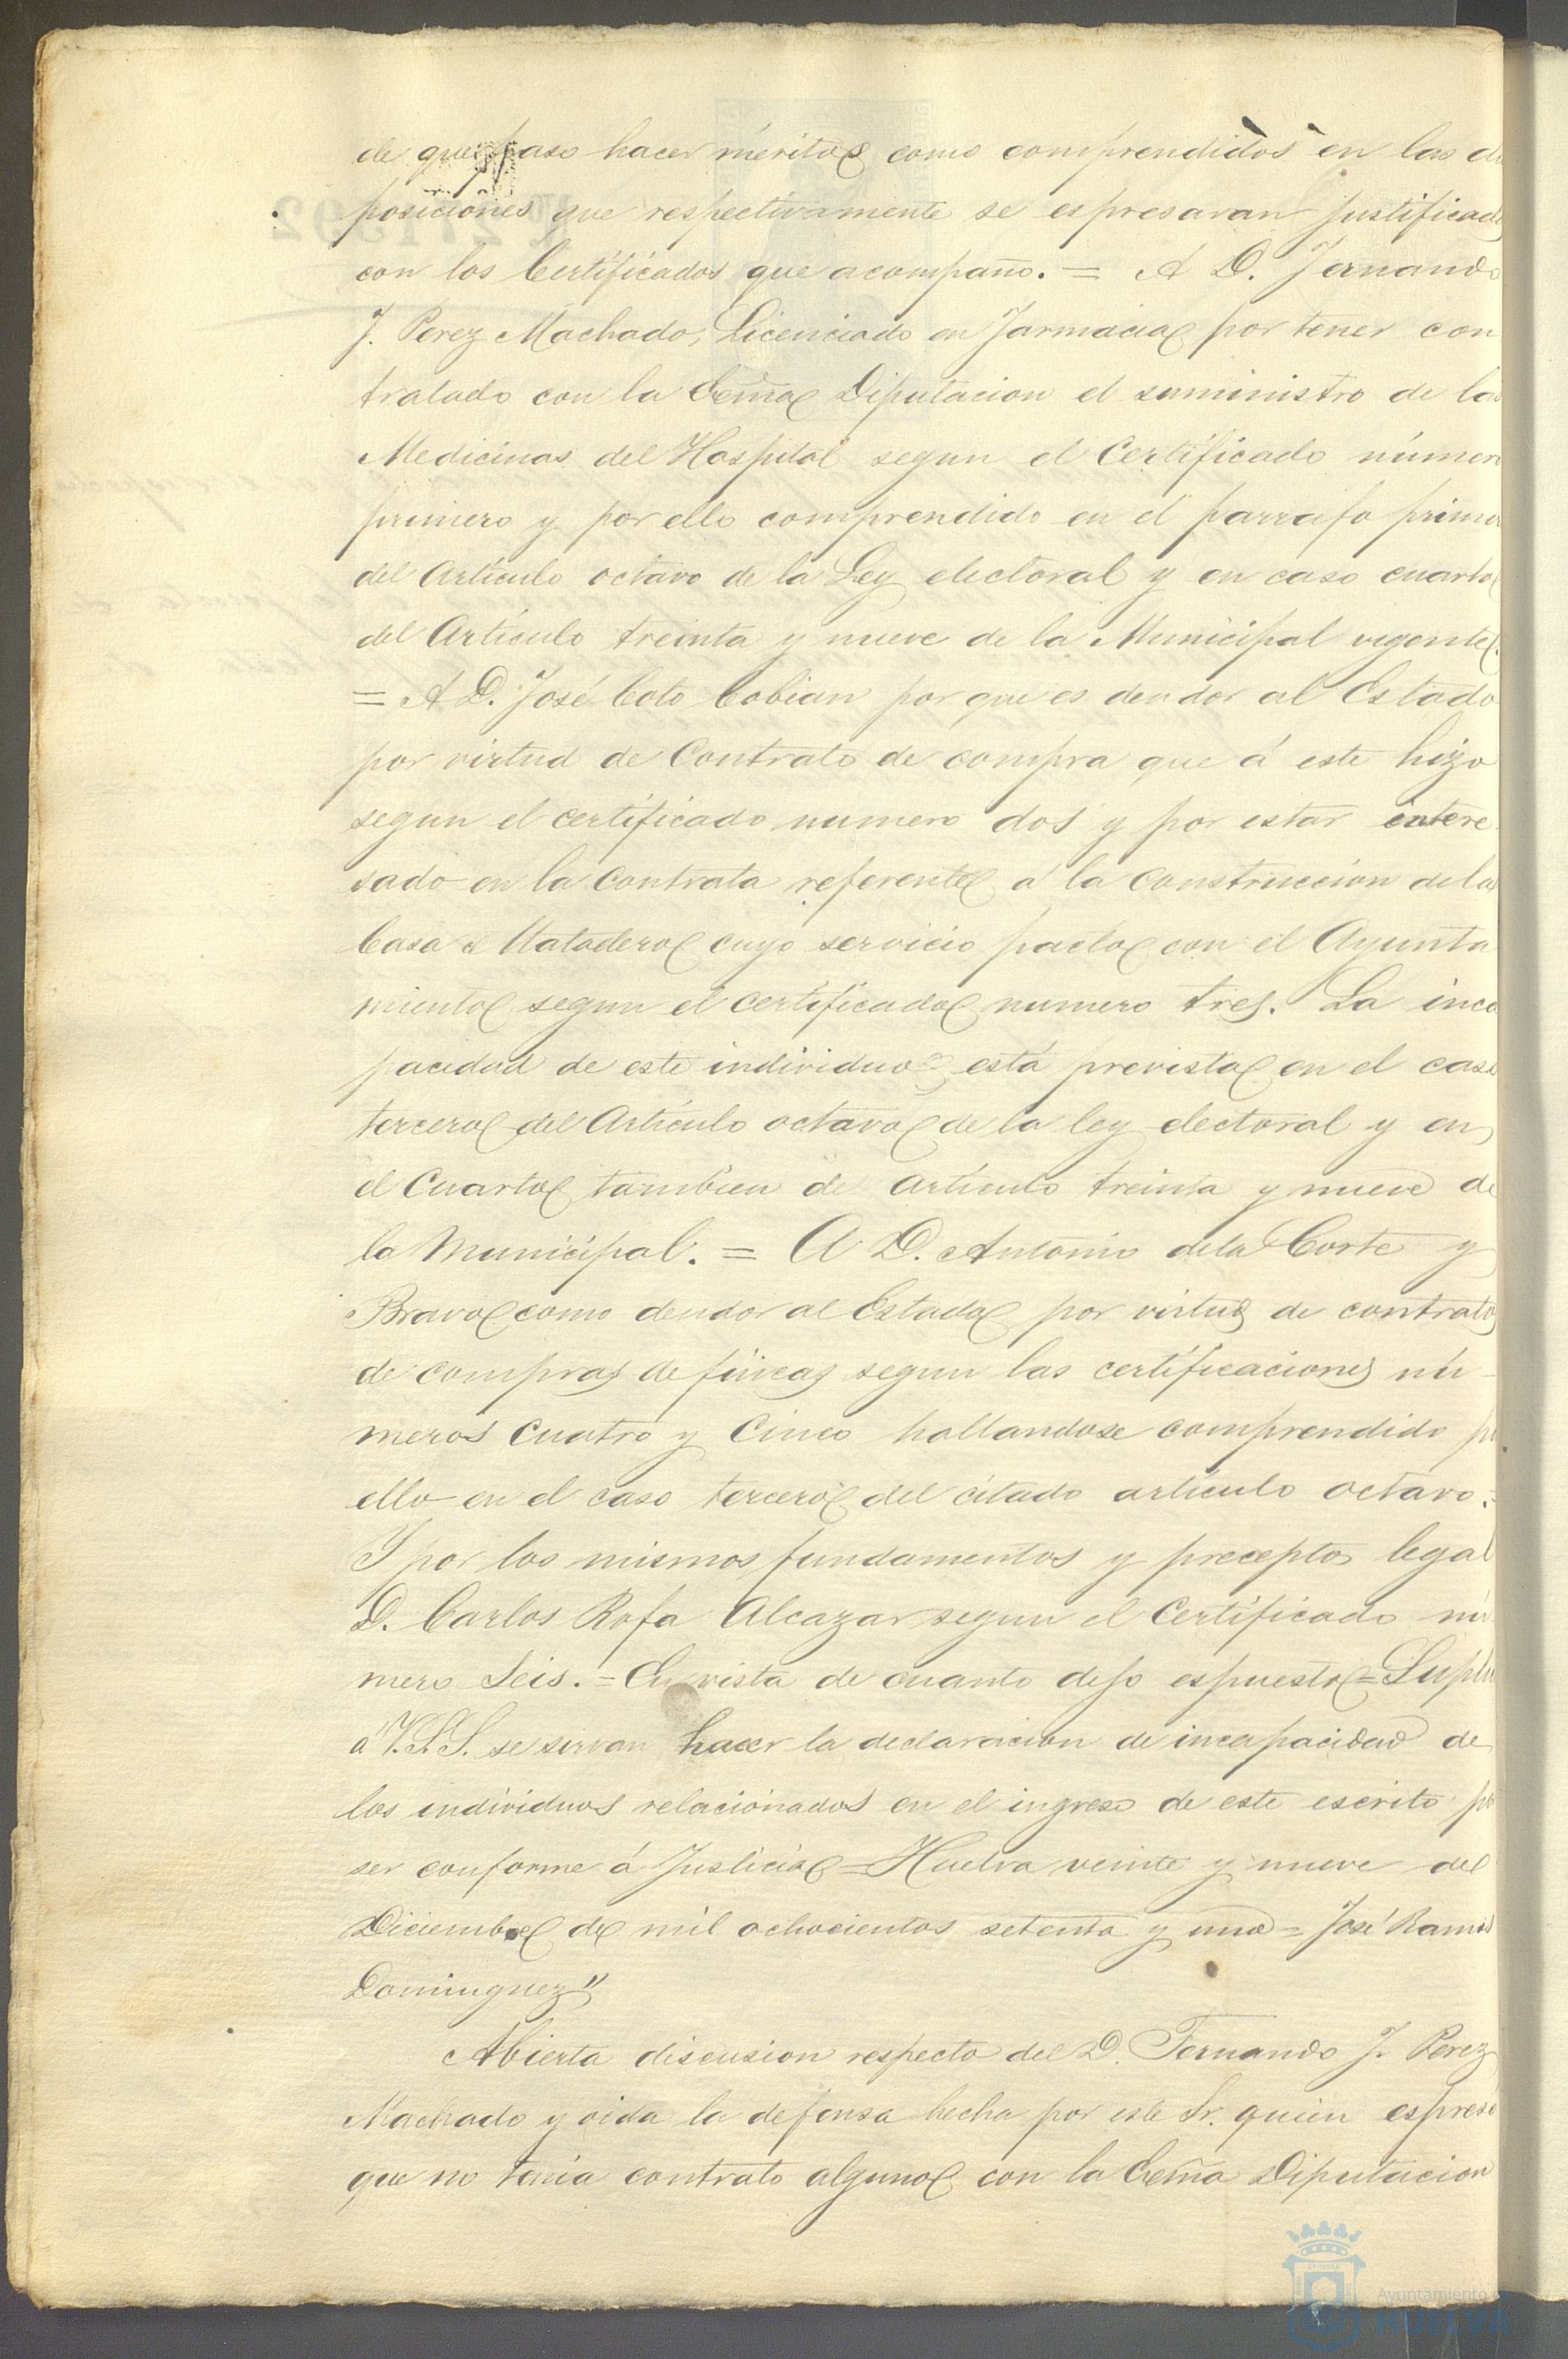 de que paso hacer méritos como comprendidos en las di
posiciones que respectivamente se espresaran justificad
con los Certificados que acompaño. = A D. Fernando
J. Perez Machado, Licenciado en Farmacia por tener con
tratado con la Ecma Diputacion el suministro de las
Medicinas del Hospital segun el Certificado número
primero y por ello comprendido en el parrafo primer
del Articulo octavo de la Ley electoral y en caso cuarto
del Articulo treinta y nueve de la Municipal vigente.
= A D. José Coto Cobian por que es deudor al Estado
por virtud de Contrato de compra que á este hizo
segun el certificado numero dos y por estar intere
sado en la contrata referente á la construccion de la
Casa Matadero cuyo servicio pacto con el Ayunta
miento segun el certificado numero tres. La inca
pacidad de este individuo está prevista en el caso
tercero del Articulo octavo de la ley electoral y en
el Cuarto tambien de articulo treinta y nueve de
la Municipal. = A D. Antonio de la Corte y
Bravo como deudor al Estado por virtud de contratos
de compras de fincas segun las certificaciones nú-
meros cuatro y Cinco hallandose comprendido p
ello en el caso tercero del citado articulo octavo. =
Y por los mismos fundamentos y preceptos legal
D. Carlos Rofa Alcazar segun el Certificado nú
mero Seis. = En vista de cuanto dejo espuesto = Suplic
á V.S.S. se sirvan hacer la declaracion de incapacidad de
los individuos relacionados en el ingreso de este escrito p
ser conforme á Justicia = Huelva veinte y nueve de
Diciembre de mil ochocientos setenta y uno = José Ramo
Dominguez"
Abierta discusion respecto del D. Fernando J. Perez
Machado y oida la defensa hecha por este Sr. quien espresó
que no tenia contrato alguno con la Ecma Diputacion
Ayuntamiento
HUELVA